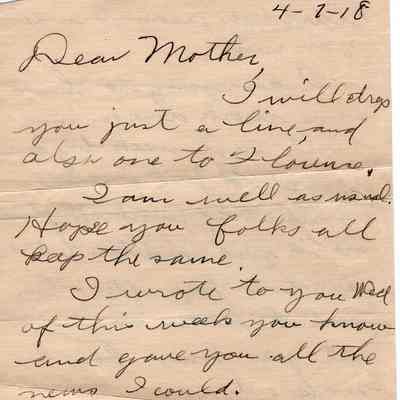 4-7-18
Dear Mother,
I will drop
you just a line, and
also one to Florence.
I am well as usual.
Hope you folks all
keep the same.
I wrote to you Wed
of this week you know
and gave you all the
news I could.